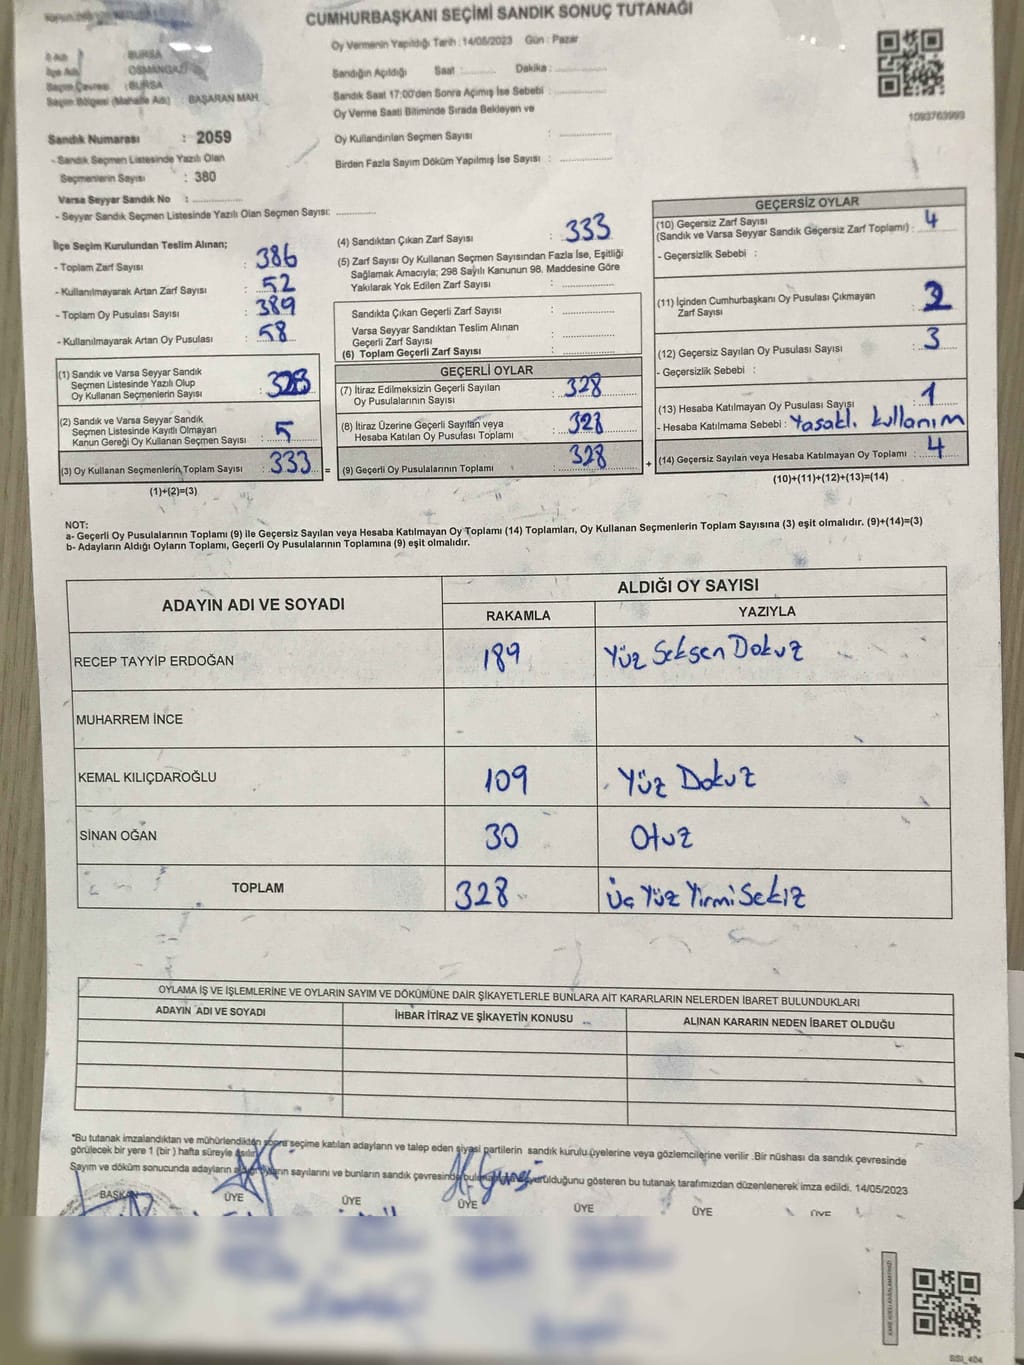 CUMHURBAŞKANI SEÇİMİ SANDIK SONUÇ TUTANAĞI
Oy Vermenin Yapıldığı Tarih : 14/05/2023 Gün : Pazar
İl Adı : BURSA
İlçe Adı : OSMANGAZİ
Seçim Çevresi : BURSA
Seçim Bölgesi (Mahalle Adı) : BAŞARAN MAH.
Sandığın Açıldığı Saat : Dakika :
Sandık Saat 17:00'den Sonra Açımış İse Sebebi :
Oy Verme Saati Bitiminde Sırada Bekleyen ve
Oy Kullandırılan Seçmen Sayısı :
Birden Fazla Sayım Döküm Yapılmış İse Sayısı :
1093763993
Sandık Numarası : 2059
- Sandık Seçmen Listesinde Yazılı Olan
Seçmenlerin Sayısı : 380
Varsa Seyyar Sandık No :
- Seyyar Sandık Seçmen Listesinde Yazılı Olan Seçmen Sayısı:
İlçe Seçim Kurulundan Teslim Alınan;
- Toplam Zarf Sayısı : 386
- Kullanılmayarak Artan Zarf Sayısı : 52
- Toplam Oy Pusulası Sayısı : 389
- Kullanılmayarak Artan Oy Pusulası : 58
(1) Sandık ve Varsa Seyyar Sandık
Seçmen Listesinde Yazılı Olup
Oy Kullanan Seçmenlerin Sayısı : 328
(2) Sandık ve Varsa Seyyar Sandık
Seçmen Listesinde Kayıtlı Olmayan
Kanun Gereği Oy Kullanan Seçmen Sayısı : 5
(3) Oy Kullanan Seçmenlerin Toplam Sayısı : 333 =
(1)+(2)=(3)
(4) Sandıktan Çıkan Zarf Sayısı : 333
(5) Zarf Sayısı Oy Kullanan Seçmen Sayısından Fazla İse, Eşitliği
Sağlamak Amacıyla; 298 Sayılı Kanunun 98. Maddesine Göre
Yakılarak Yok Edilen Zarf Sayısı :
Sandıkta Çıkan Geçerli Zarf Sayısı :
Varsa Seyyar Sandıktan Teslim Alınan
Geçerli Zarf Sayısı :
(6) Toplam Geçerli Zarf Sayısı :
GEÇERLİ OYLAR
(7) İtiraz Edilmeksizin Geçerli Sayılan
Oy Pusulalarının Sayısı : 328
(8) İtiraz Üzerine Geçerli Sayılan veya
Hesaba Katılan Oy Pusulası Toplamı : 328
(9) Geçerli Oy Pusulalarının Toplamı : 328 +
GEÇERSİZ OYLAR
(10) Geçersiz Zarf Sayısı
(Sandık ve Varsa Seyyar Sandık Geçersiz Zarf Toplamı) : 4
- Geçersizlik Sebebi :
(11) İçinden Cumhurbaşkanı Oy Pusulası Çıkmayan
Zarf Sayısı :
(12) Geçersiz Sayılan Oy Pusulası Sayısı : 3
- Geçersizlik Sebebi :
(13) Hesaba Katılmayan Oy Pusulası Sayısı : 1
- Hesaba Katılmama Sebebi : Yasaklı kullanım
(14) Geçersiz Sayılan veya Hesaba Katılmayan Oy Toplamı : 4
(10)+(11)+(12)+(13)=(14)
NOT:
a- Geçerli Oy Pusulalarının Toplamı (9) ile Geçersiz Sayılan veya Hesaba Katılmayan Oy Toplamı (14) Toplamları, Oy Kullanan Seçmenlerin Toplam Sayısına (3) eşit olmalıdır. (9)+(14)=(3)
b- Adayların Aldığı Oyların Toplamı, Geçerli Oy Pusulalarının Toplamına (9) eşit olmalıdır.
ADAYIN ADI VE SOYADI
ALDIĞI OY SAYISI
RAKAMLA YAZIYLA
RECEP TAYYİP ERDOĞAN 189 Yüz Seksen Dokuz
MUHARREM İNCE
KEMAL KILIÇDAROĞLU 109 Yüz Dokuz
SİNAN OĞAN 30 Otuz
TOPLAM 328 Üç Yüz Yirmi Sekiz
OYLAMA İŞ VE İŞLEMLERİNE VE OYLARIN SAYIM VE DÖKÜMÜNE DAİR ŞİKAYETLERLE BUNLARA AİT KARARLARIN NELERDEN İBARET BULUNDUKLARI
ADAYIN ADI VE SOYADI İHBAR İTİRAZ VE ŞİKAYETİN KONUSU ALINAN KARARIN NEDEN İBARET OLDUĞU
*Bu tutanak imzalandıktan ve mühürlendikten sonra seçime katılan adayların ve talep eden siyasi partilerin sandık kurulu üyelerine veya gözlemcilerine verilir. Bir nüshası da sandık çevresinde
görülecek bir yere 1 (bir) hafta süreyle asılır.
Sayım ve döküm sonucunda adayların aldığı oyların sayılarını ve bunların sandık çevresinde görülduğunu gösteren bu tutanak tarafımızdan düzenlenerek imza edildi. 14/05/2023
BAŞKAN ÜYE ÜYE ÜYE ÜYE ÜYE ÜYE
SSI_404